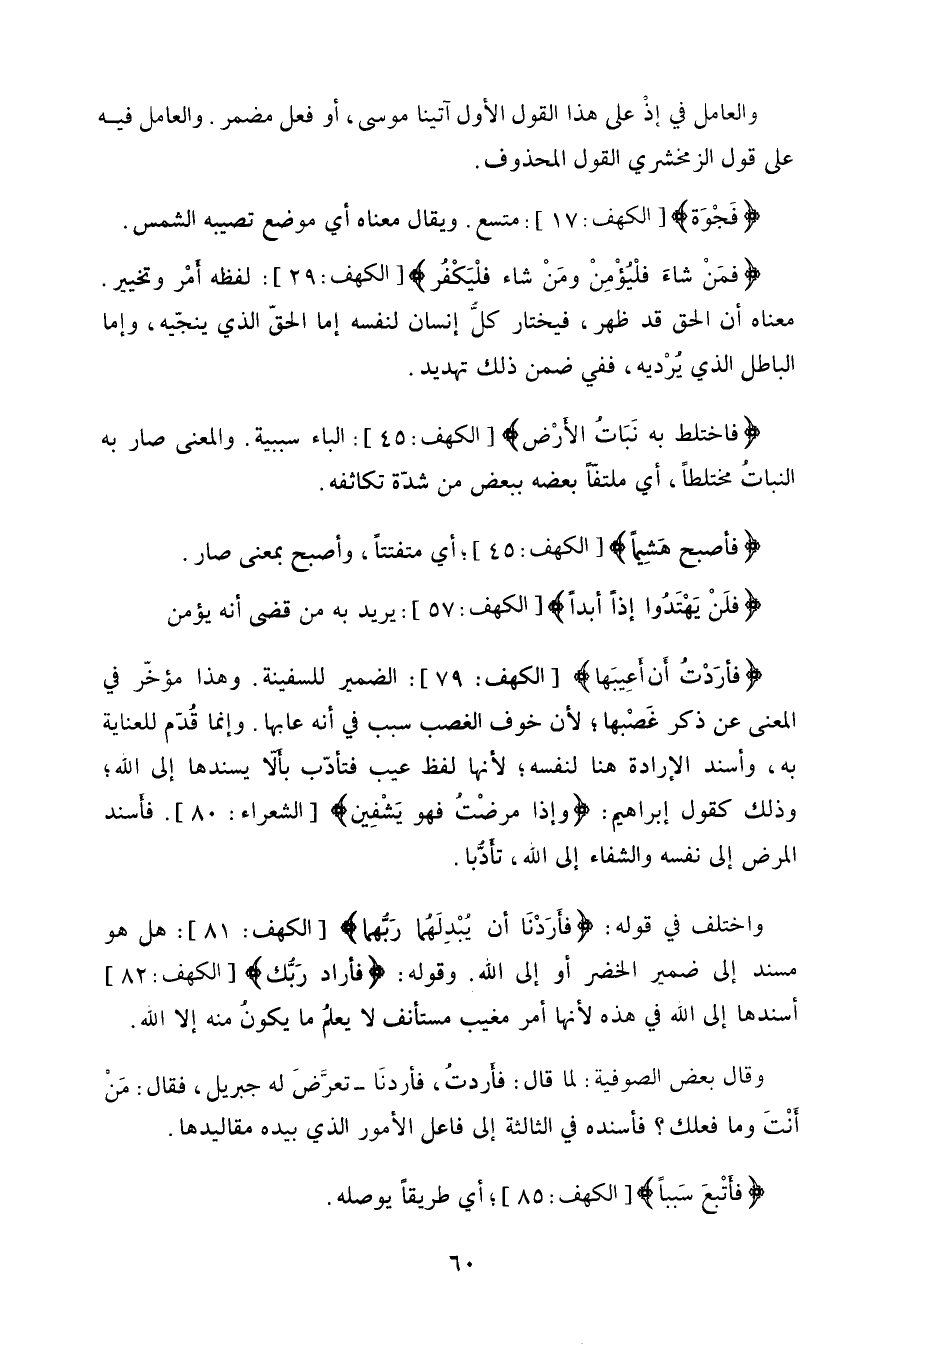 والعامل في إذْ على هذا القول الأول آتينا موسى، أو فعل مضمر. والعامل فيه
على قول الزمخشري القول المحذوف.
﴿فَجْوَة﴾ [الكهف: ١٧]: متسع. ويقال معناه أي موضع تصيبه الشمس.
﴿فمَنْ شاءَ فلْيُؤْمِنْ ومَنْ شاء فلْيَكْفُر﴾ [الكهف: ٢٩]: لفظه أَمْر وتخيير.
معناه أن الحق قد ظهر، فيختار كلُّ إنسان لنفسه إما الحقّ الذي ينجّيه، وإما
الباطل الذي يُرْديه، ففي ضمن ذلك تهديد.
﴿فاختلط به نَبَاتُ الأَرْض﴾ [الكهف: ٤٥]: الباء سببية. والمعنى صار به
النباتُ مختلطاً، أي ملتفّاً بعضه ببعض من شدّة تكاثفه.
﴿فأصبح هَشِيماً﴾ [الكهف: ٤٥]؛ أي متفتتاً، وأصبح بمعنى صار.
﴿فلَنْ يَهْتَدُوا إذاً أبداً﴾ [الكهف: ٥٧]: يريد به من قضى أنه يؤمن
﴿فأرَدْتُ أَن أَعِيبَها﴾ [الكهف: ٧٩]: الضمير للسفينة. وهذا مؤخّر في
المعنى عن ذكر غَصْبها؛ لأن خوف الغصب سبب في أنه عابها. وإنما قُدّم للعناية
به، وأسند الإرادة هنا لنفسه؛ لأنها لفظ عيب فتأدّب بألّا يسندها إلى الله؛
وذلك كقول إبراهيم: ﴿وإذا مرضْتُ فهو يَشْفِين﴾ [الشعراء: ٨٠]. فأسند
المرض إلى نفسه والشفاء إلى الله، تأدُّبا.
واختلف في قوله: ﴿فأَرَدْنَا أن يُبْدِلَهُما رَبُّهما﴾ [الكهف: ٨١]: هل هو
مسند إلى ضمير الخضر أو إلى الله. وقوله: ﴿فأراد رَبُّك﴾ [الكهف: ٨٢]
أسندها إلى الله في هذه لأنها أمر مغيب مستأنف لا يعلمُ ما يكونُ منه إلا الله.
وقال بعض الصوفية: لما قال: فأردتُ، فأردنَا - تعرَّضَ له جبريل، فقال: مَنْ
أَنْتَ وما فعلك؟ فأسنده في الثالثة إلى فاعل الأمور الذي بيده مقاليدها.
﴿فأَتْبعَ سَبباً﴾ [الكهف: ٨٥]؛ أي طريقاً يوصله.
٦٠